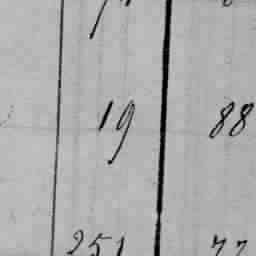 19 88
251 77